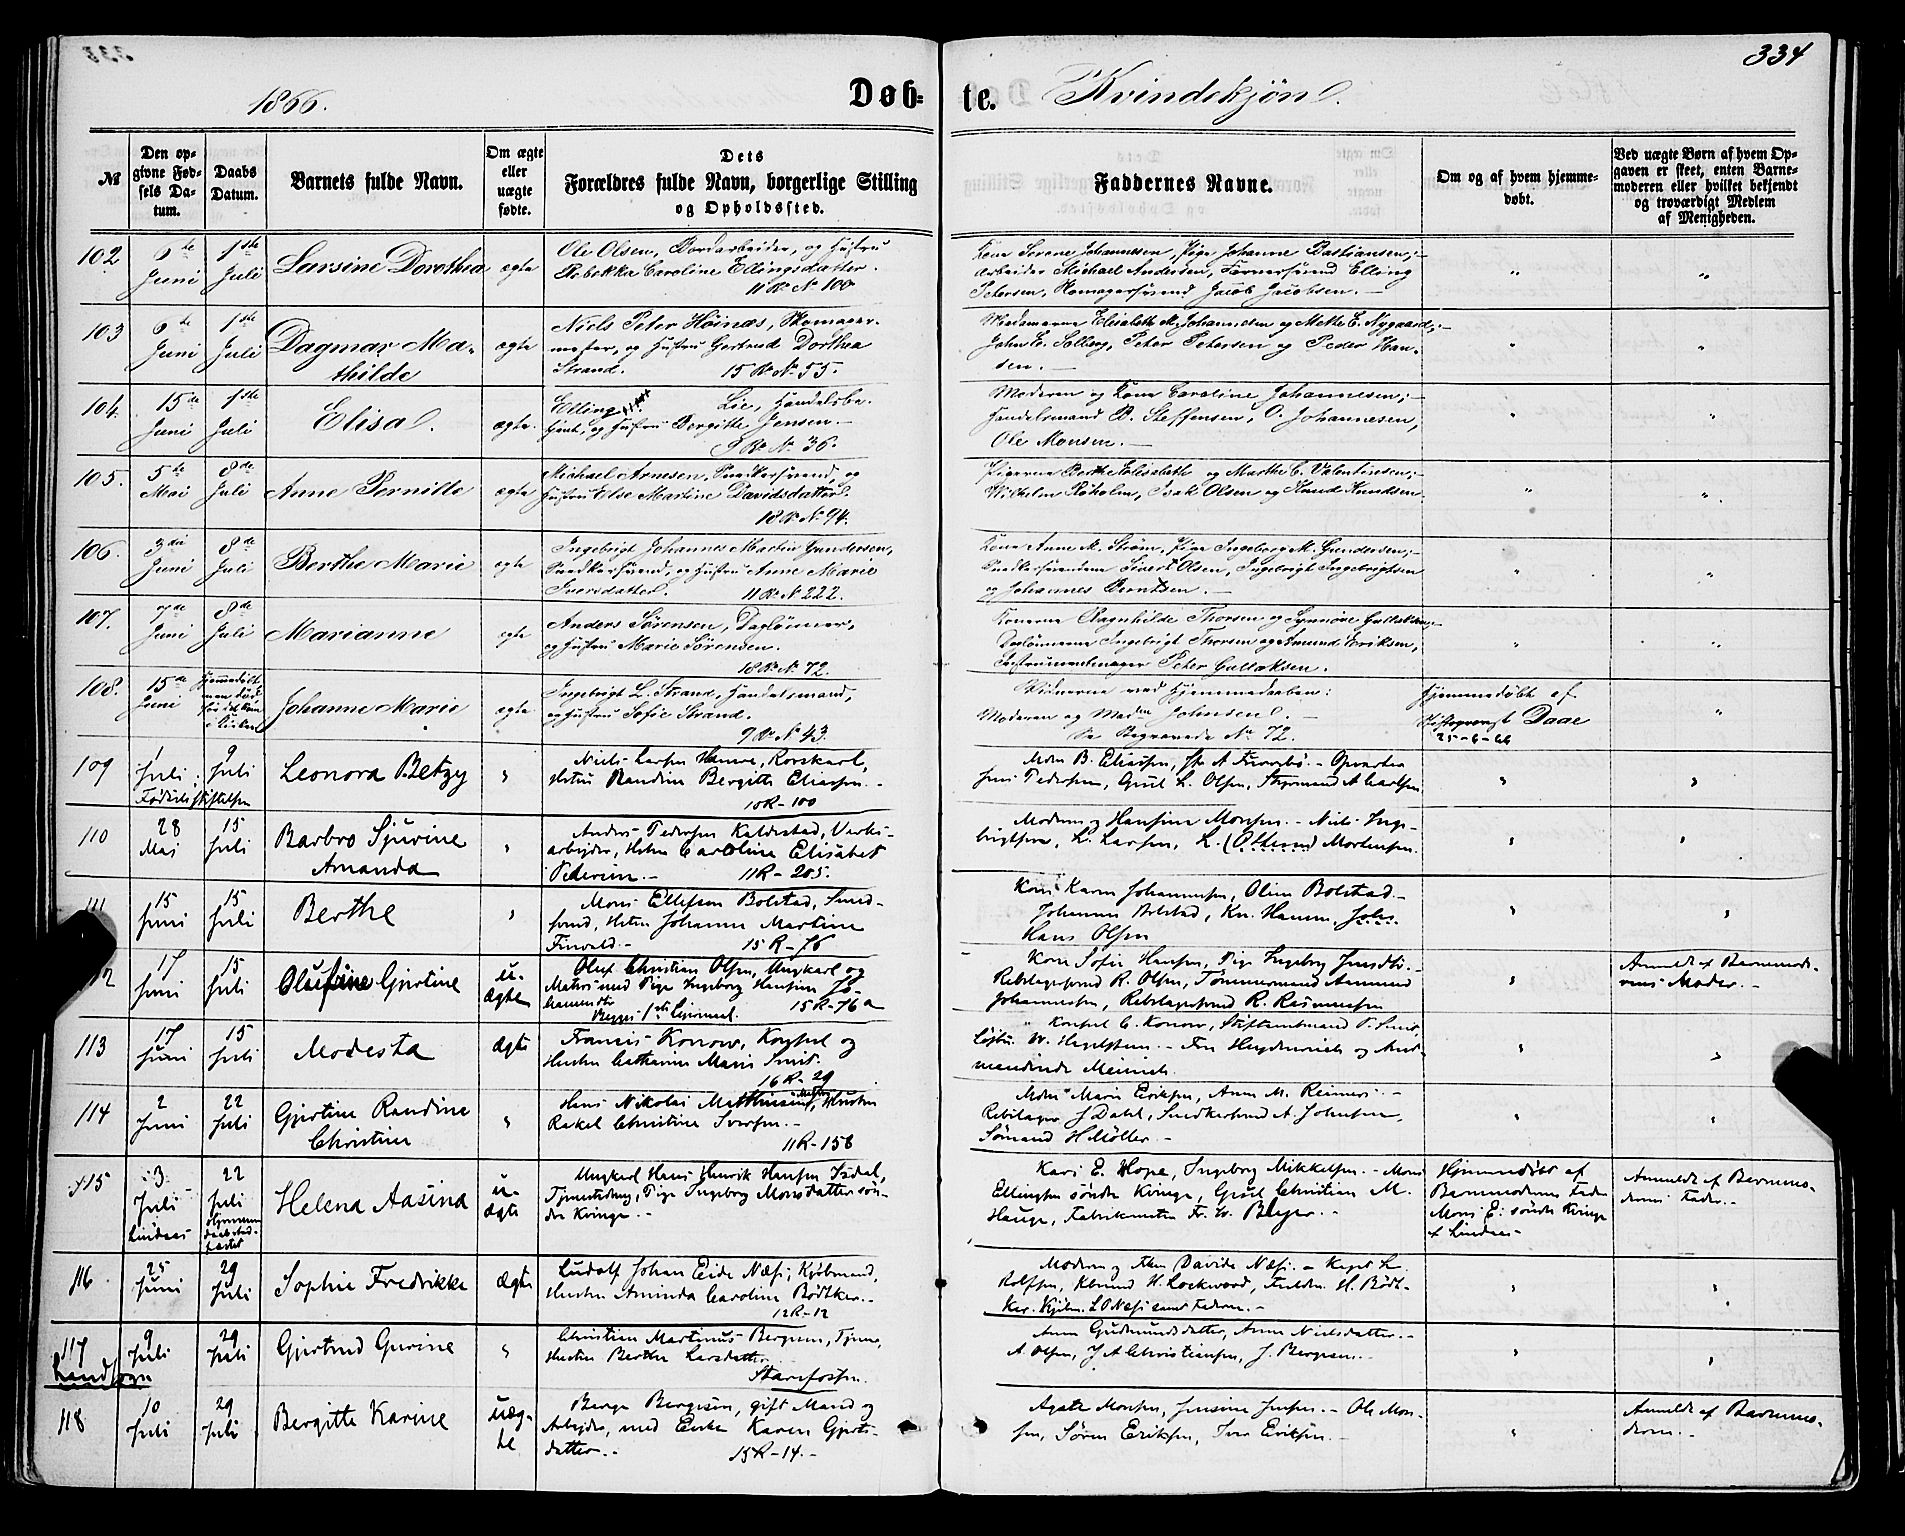 334
1866.
Døb-
te.
Kvindekjøn.
№
Den op-
givne Fød-
sels Da-
tum.
Daabs
Datum.
Barnets fulde Navn.
Om ægte
eller
uægte
fødte.
Dets
Forældres fulde Navn, borgerlige Stilling
og Opholdssted.
Faddernes Navne.
Om og af hvem hjemme-
døbt.
Ved uægte Børn af hvem Op-
gaven er skeet, enten Barne-
moderen eller hvilket bekjendt
og troværdigt Medlem
af Menigheden.
102
6te
Juni
1ste
Juli
Larsine Dorothea
ægte
Ole Olsen, Bordarbeider, og Hustru
Rebekka Caroline Ellingsdatter.
11 R. N. 100
Kone Serene Johannesen, Pige Johanne Bastiansen;-
Arbeider Michael Andersen, Farversvend Elling
Petersen, Skomagersvend Jacob Jacobsen.
103
6te
Juni
1ste
Juli
Dagmar Ma-
thilde
ægte
Niels Peter Høinæs, Skomager-
mester, og Hustru Gertrud Dorthea
Strand.
15 R. N. 55.
Madamerne Elisabeth M. Johannesen og Mette E. Nygaard;-
John E. Solberg, Peter Petersen og Peder Han-
sen.
104.
15de
Juni
1ste
Juli
Elisa.
ægte.
Elling Lie, Handelsbe-
tjent, og Hustru Bergitte Jensen.
9 R. N. 36.
Moderen og Kone Caroline Johannesen;-
Handelsmand B. Steffensen, O. Johannesen,
Ole Monsen.
105.
5te
Mai
8de
Juli
Anne Pernille
ægte
Michael Arnesen, Snedkersvend, og
Hustru Else Martine Davidsdatter.
18 R. N. 94.
Pigerne Berthe Elisabeth og Marthe C. Valentinsen;-
Wilhelm Røholm, Isak Olsen og Knud Knudsen
106.
3die
Juni
8de
Juli
Berthe Marie
ægte
Ingebrigt Johannes Martin Gundersen,
Snedkersvend, og Hustru Anne Marie
Iversdatter.
11 R. N. 222.
Kone Anne M. Strøm, Pige Ingeborg M. Gundersen;-
Snedkersvendene Sivert Olsen, Ingebrigt Ingebrigtsen
og Johannes Berntsen.
107.
7de
Juni
8de
Juli
Marianne
ægte
Anders Sørensen, Daglønner,
og Hustru Marie Sørensen.
18 R. N. 72.
Konerne Ragnhilde Thorsen og Synnøve Gullaksen;
Daglønnerne Ingebrigt Thorsen og Amund Eriksen,
Instrumentmager Peter Gullaksen.
108.
15de
Juni
Hjemmedøbt
men død
før det kom
i Kirken
Johanne Marie
ægte
Ingebrigt L. Strand, Handelsmand,
og Hustru Sofie Strand.
9 R. N. 43.
Vidnerne ved Hjemmedaaben:
Moderen og Madm Johnsen.
Se Begravede No 72.
Hjemmedøbt af
Stiftsprovst Daae
25-6-66
109
1
Juli
Fødselsstiftelsen
9
Juli
Leonora Betzy
Niels Larsen Hamre, Rorskarl,
Hstru Randine Bergitte Eliassen.
10R-100
Mdm B. Eliassen,
Jens Pedersen, Gsel L. Olsen, Styrmand A Carlsen
110
28
Maj
15
Juli
Barbro Sjurine
Amanda
Anders Pedersen Kaldestad, Verks-
arbejder, Hstru Caroline Elisabet
Pedersen.-
11R-205.
Moderen og Hansine Monsen. - Niels Inge-
brigtsen, L. Larsen, L. Mortensen.
111
15
Juni
15
Juli
Berthe
Mons Ellefsen Bolstad, Smed-
svend, Hstru Johanne Martine
15 R-76
Kone Karen Johannesen, Oline Bolstad.-
Johannes Bolstad, Kn. Hamm,
Hans Olsen
112
17
Juni
15
Juli
Olufine Gjertine
u-
ægte
Oluf Christian Olsen, Ungkarl og
Matros med Pige Ingeborg Hansine Jo-
hannesen
Begges 1ste Lejermaal.
15 R-76a
Kone Sofie Hansen, Pige Ingeborg
Rebslagersvend R. Olsen, Tømmermand Aamund
Johannesen, Rebslagersvend R. Rasmussen
Anmeldt af Barnemode-
rens Moder.-
113
17
Juni
15
Juli
Modesta
ægte
Francis Konow, Konsul og
Hustru Catharina Maria Smit.
16 R-29
Konsul C. Konow, Stiftamtmand
W. Hagelsteen.
114
2
Juni
22
Juli
Gjertine Randine
Christine
Hans Nikolai Matthiesen, Hustru
Rakel Christine Iversen.-
11R-158
Mdm Marie Eriksen, Anne M. Reimers.-
Rebslager J Dahl, Snedkersvend A. Johnsen,
Sømand H Møller.-
115
3
Juli
Lindaas
22
Juli
Helena Aasina
u-
ægte
Ungkarl Hans Henrik Hansen Isdal,
Tjenestedreng, Pige Ingeborg Monsdatter søn-
dre Kvinge.-
Kari E. Hope, Ingeborg Mikkelsen.- Mons
Ellingsen søndre Kvinge, Gsel Christian M.
Hauge, Fabrikmester Fr. W. Beyer.-
Hjemmedøbt af
Barnemoderens Fader
Mons E. søndre Kvinge
af Lindaas-
Anmeldt af Barnemo-
derens Fader.-
116
25
Juni
29
Juli
Sophie Fredrikke
ægte
Ludolf Johan Eide Næss, Kjøbmand,
Hustru Aminda Caroline Bødtker.-
12R-12
Moderen og Davide Næss.- Kapt L.
Rolfsen, Kbmnd H. Lockwood, H. Bødt-
ker. L O Næss samt Faderen.-
117
Landsogn
9
Juli
29
Juli
Gjertrud Gurine
Christian Martinus Bergesen, Tjener,
Hustru Berthe Larsdatter
Starefossen.
Anna Gudmundsdatter, Anna Nielsdatter.-
A. Olsen, J A Christiansen, J. Bergesen.-
118
10
Juli
29
Juli
Bergitte Karine
uæg-
te
Berge Bergesen, gift Mand og
Arbejder, med Enke Karen Gjerts-
datter.-
15R-14.-
Agate Monsen, Jensine Jensen.- Ole Mon-
sen, Søren Eriksen, Iver Eriksen.
Anmeldt af Barnemo-
deren.-